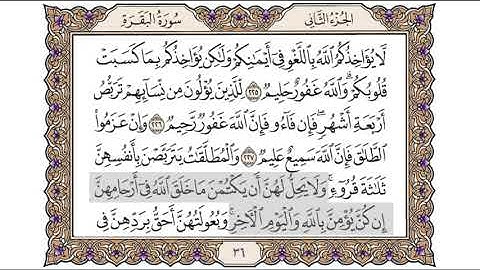 الجزء الثاني
سورة البقرة
لَّا يُؤَاخِذُكُمُ ٱللَّهُ بِٱللَّغْوِ فِىٓ أَيْمَـٰنِكُمْ وَلَـٰكِن يُؤَاخِذُكُم بِمَا كَسَبَتْ
قُلُوبُكُمْ ۗ وَٱللَّهُ غَفُورٌ حَلِيمٌ ٢٢٥ لِّلَّذِينَ يُؤْلُونَ مِن نِّسَآئِهِمْ تَرَبُّصُ
أَرْبَعَةِ أَشْهُرٍ ۖ فَإِن فَآءُو فَإِنَّ ٱللَّهَ غَفُورٌ رَّحِيمٌ ٢٢٦ وَإِنْ عَزَمُوا۟
ٱلطَّلَـٰقَ فَإِنَّ ٱللَّهَ سَمِيعٌ عَلِيمٌ ٢٢٧ وَٱلْمُطَلَّقَـٰتُ يَتَرَبَّصْنَ بِأَنفُسِهِنَّ
ثَلَـٰثَةَ قُرُوٓءٍ ۚ وَلَا يَحِلُّ لَهُنَّ أَن يَكْتُمْنَ مَا خَلَقَ ٱللَّهُ فِىٓ أَرْحَامِهِنَّ
إِن كُنَّ يُؤْمِنَّ بِٱللَّهِ وَٱلْيَوْمِ ٱلْـَٔاخِرِ ۚ وَبُعُولَتُهُنَّ أَحَقُّ بِرَدِّهِنَّ فِى
٣٦